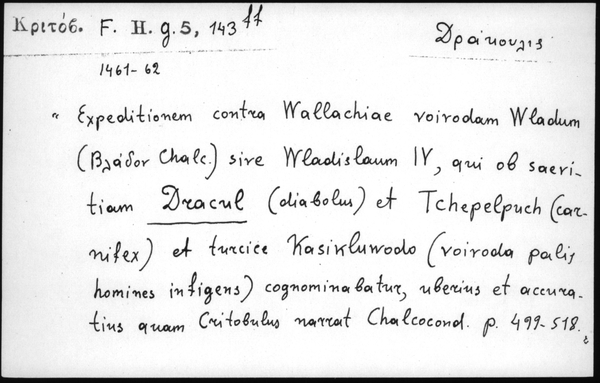 Κριτόβ. F. H. g. 5, 143 ff
Δράκουλις
1461-62
" Expeditionem contra Wallachiae voivodam Wladum
(Βλάδον Chalc.) sive Wladislaum IV, qui ob saevi-
tiam Dracul (diabolus) et Tchepelpuch (car-
nifex) et turcice Kasikluwodo (voivoda palis
homines infigens) cognominabatur, uberius et accura-
tius quam Critobulus narrat Chalcocond. p. 499-518.